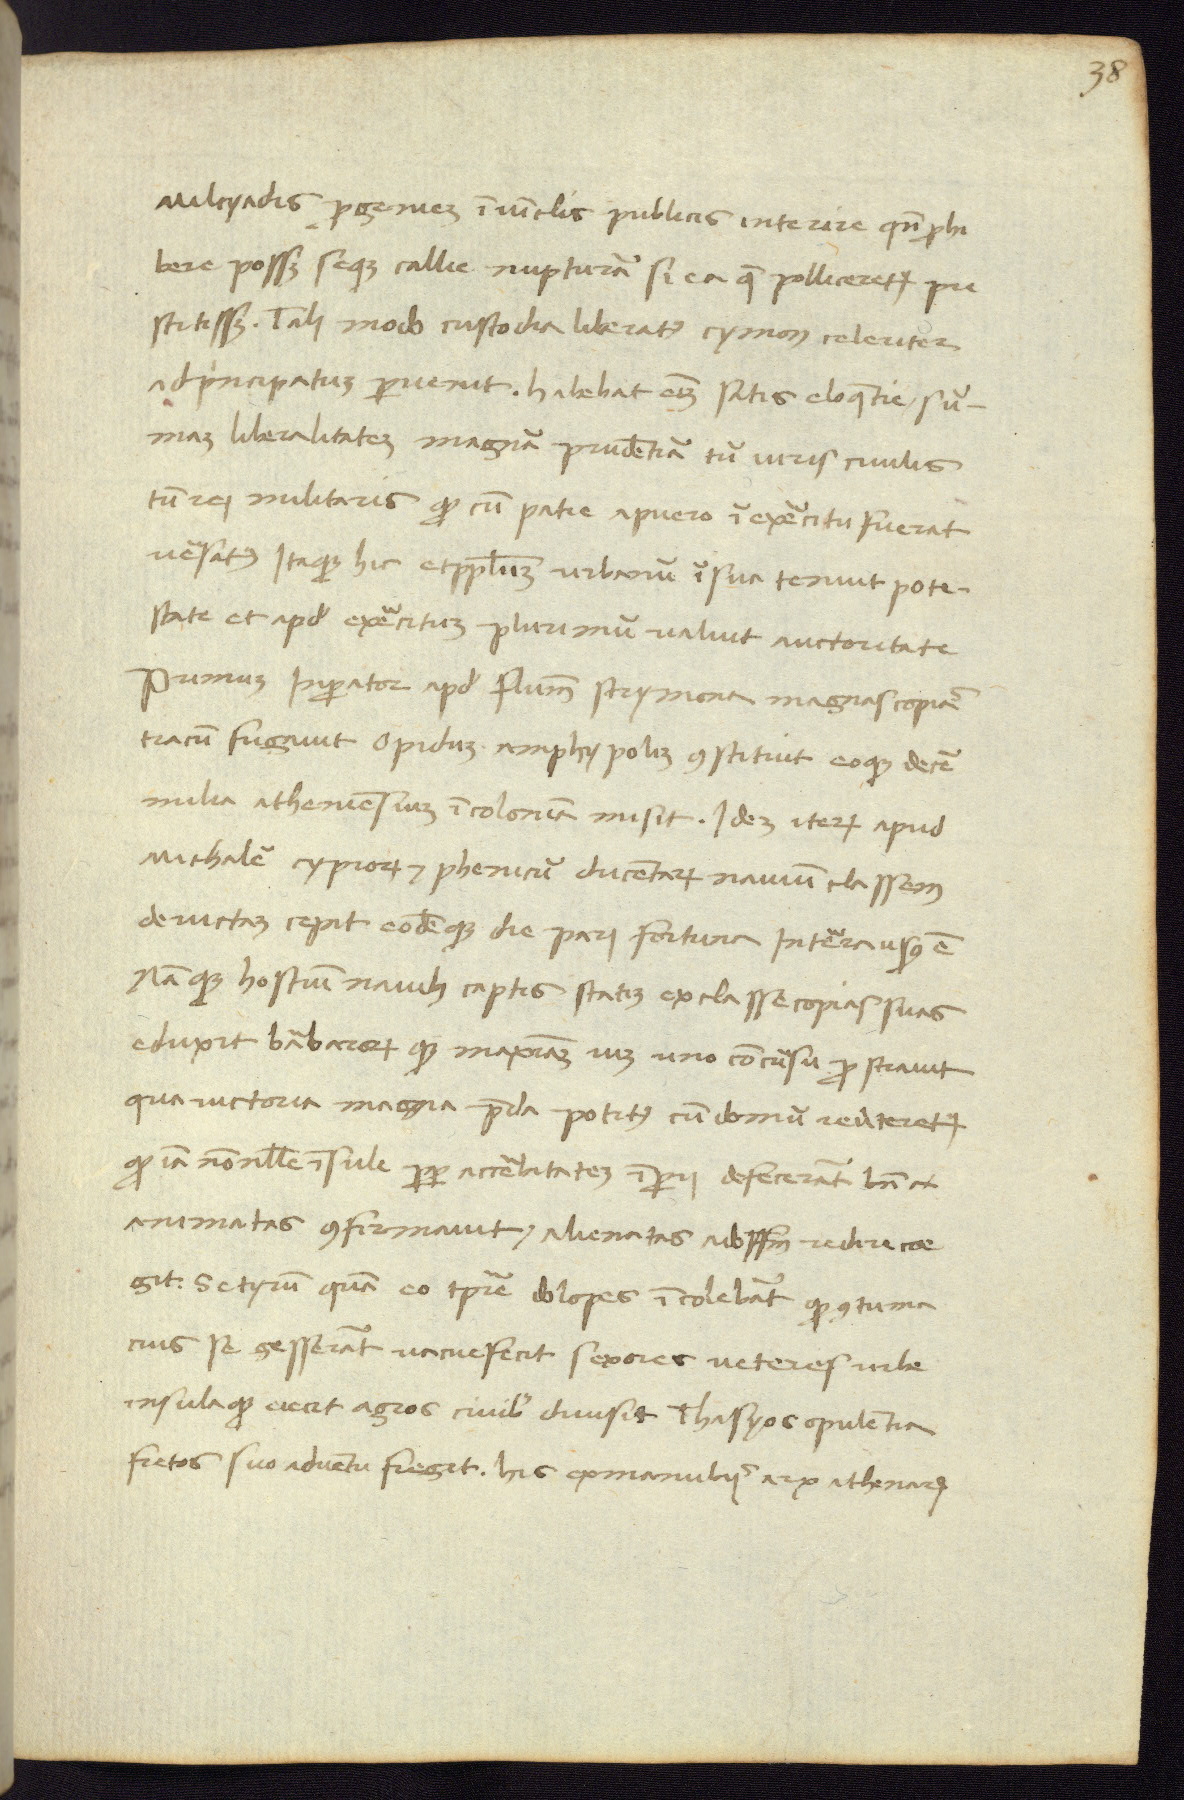 38
Milcyadis ꝓgeniez ī vīclis publicis interire qn̄ ꝓhi
bere possz seqȝ callie nupturā si ea q̄ polliceretꝝ pre
stitissz. Tali modo custodia liberatꝰ cymon celeriter
ad pͥncipatuz ꝑuenit. habebat em̄ satis eloq̄tie sū-
maz liberalitatez magnā prudētiā tū iuris ciuilis
tū rei militaris ꝙ cū patre a puero ī exercitu fuerat
uersatꝰ Itaqȝ hic et ppl̄uȝ urbanū ī sua tenuit pote-
state et apd̛ exercituȝ plurimū ualuit auctoritate
Primuȝ Inꝑator apd̛ flum̄ strymona magnas copias
tracū fugauit Opiduȝ amphypolȝ ꝯstituit eoqȝ decē
milia atheniēsiuȝ ī coloniā misit. Ideȝ iterꝝ apud
Michalē cypriorꝝ ⁊ phenicū ducētarꝝ nauiū classem
deuictaȝ cepit eodēqȝ die pari fortuna In terra usꝰ ē
Nāqȝ hostiū nauibȝ captis statiȝ ex classe copias suas
eduxit barbarorꝝ qȝ maxīaȝ uiȝ uno cōcursu ꝓstrauit
qua uictoria magna p̄da potitꝰ cū domū reuteretꝝ
ꝙ iā nōnulle īsule ꝓꝑ accerbitateȝ īꝑij defecerāt bn̄
animatas ꝯfirmauit, alienatas ad offm̄ redire coe
git. Scyrū quā eo tp̄re dolopes īcolebāt ꝙ ꝯtuma
cius se gesserāt uacuefecit sexores ueteres urbe
insulaqȝ eiecit agros ciuibꝰ diuisit Thasyos opulētia
fretos suo aduētu fregit. his ex manubijs arx athenarꝝ